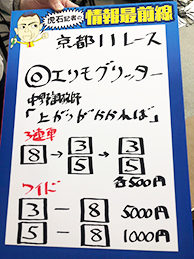 虎石記者の
情報最前線
京都11レース
◎エリモブリッター
中野調教師
「上がりがかかれば」
3連単
8→3→3
5 5
各500円
ワイド
3-8 5000円
5-8 1000円